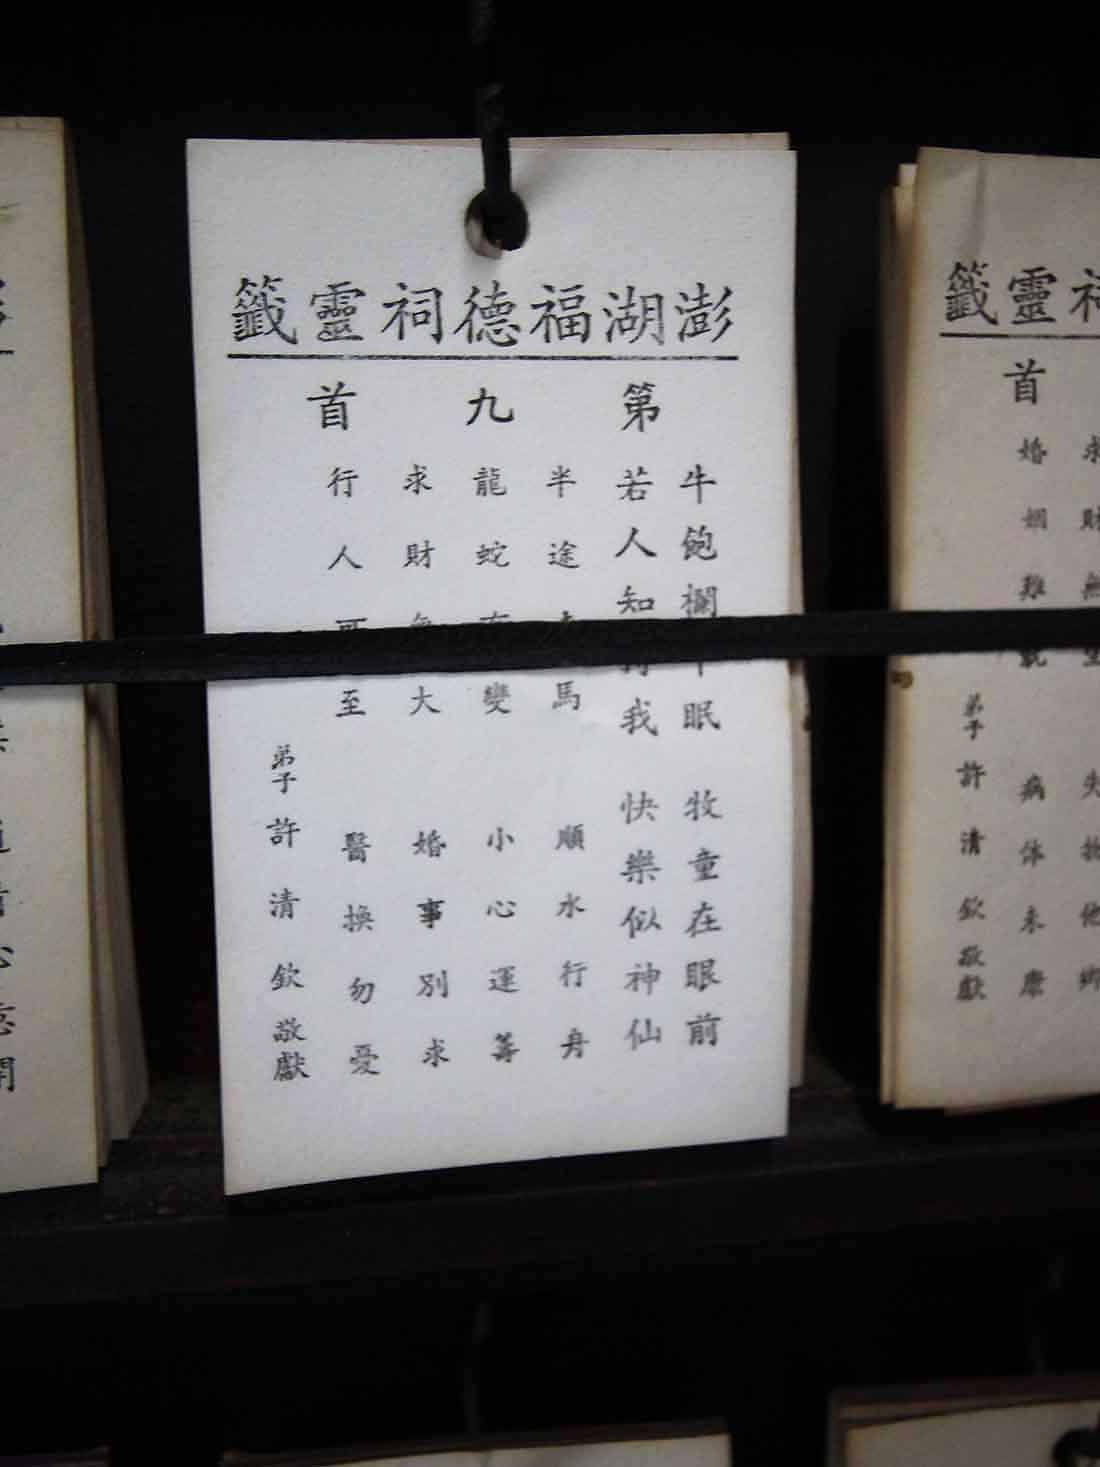 澎湖福德祠靈籤
第九首
牛飽欄 眠 牧童在眼前
若人知 我 快樂似神仙
半途 馬 順水行舟
龍蛇 變 小心運籌
求財 大 婚事別求
行人 至 醫換勿憂
弟子許清欽敬獻
籤靈祠
首
求財無 失物他鄉
婚姻難 病体未康
弟子許清欽敬獻